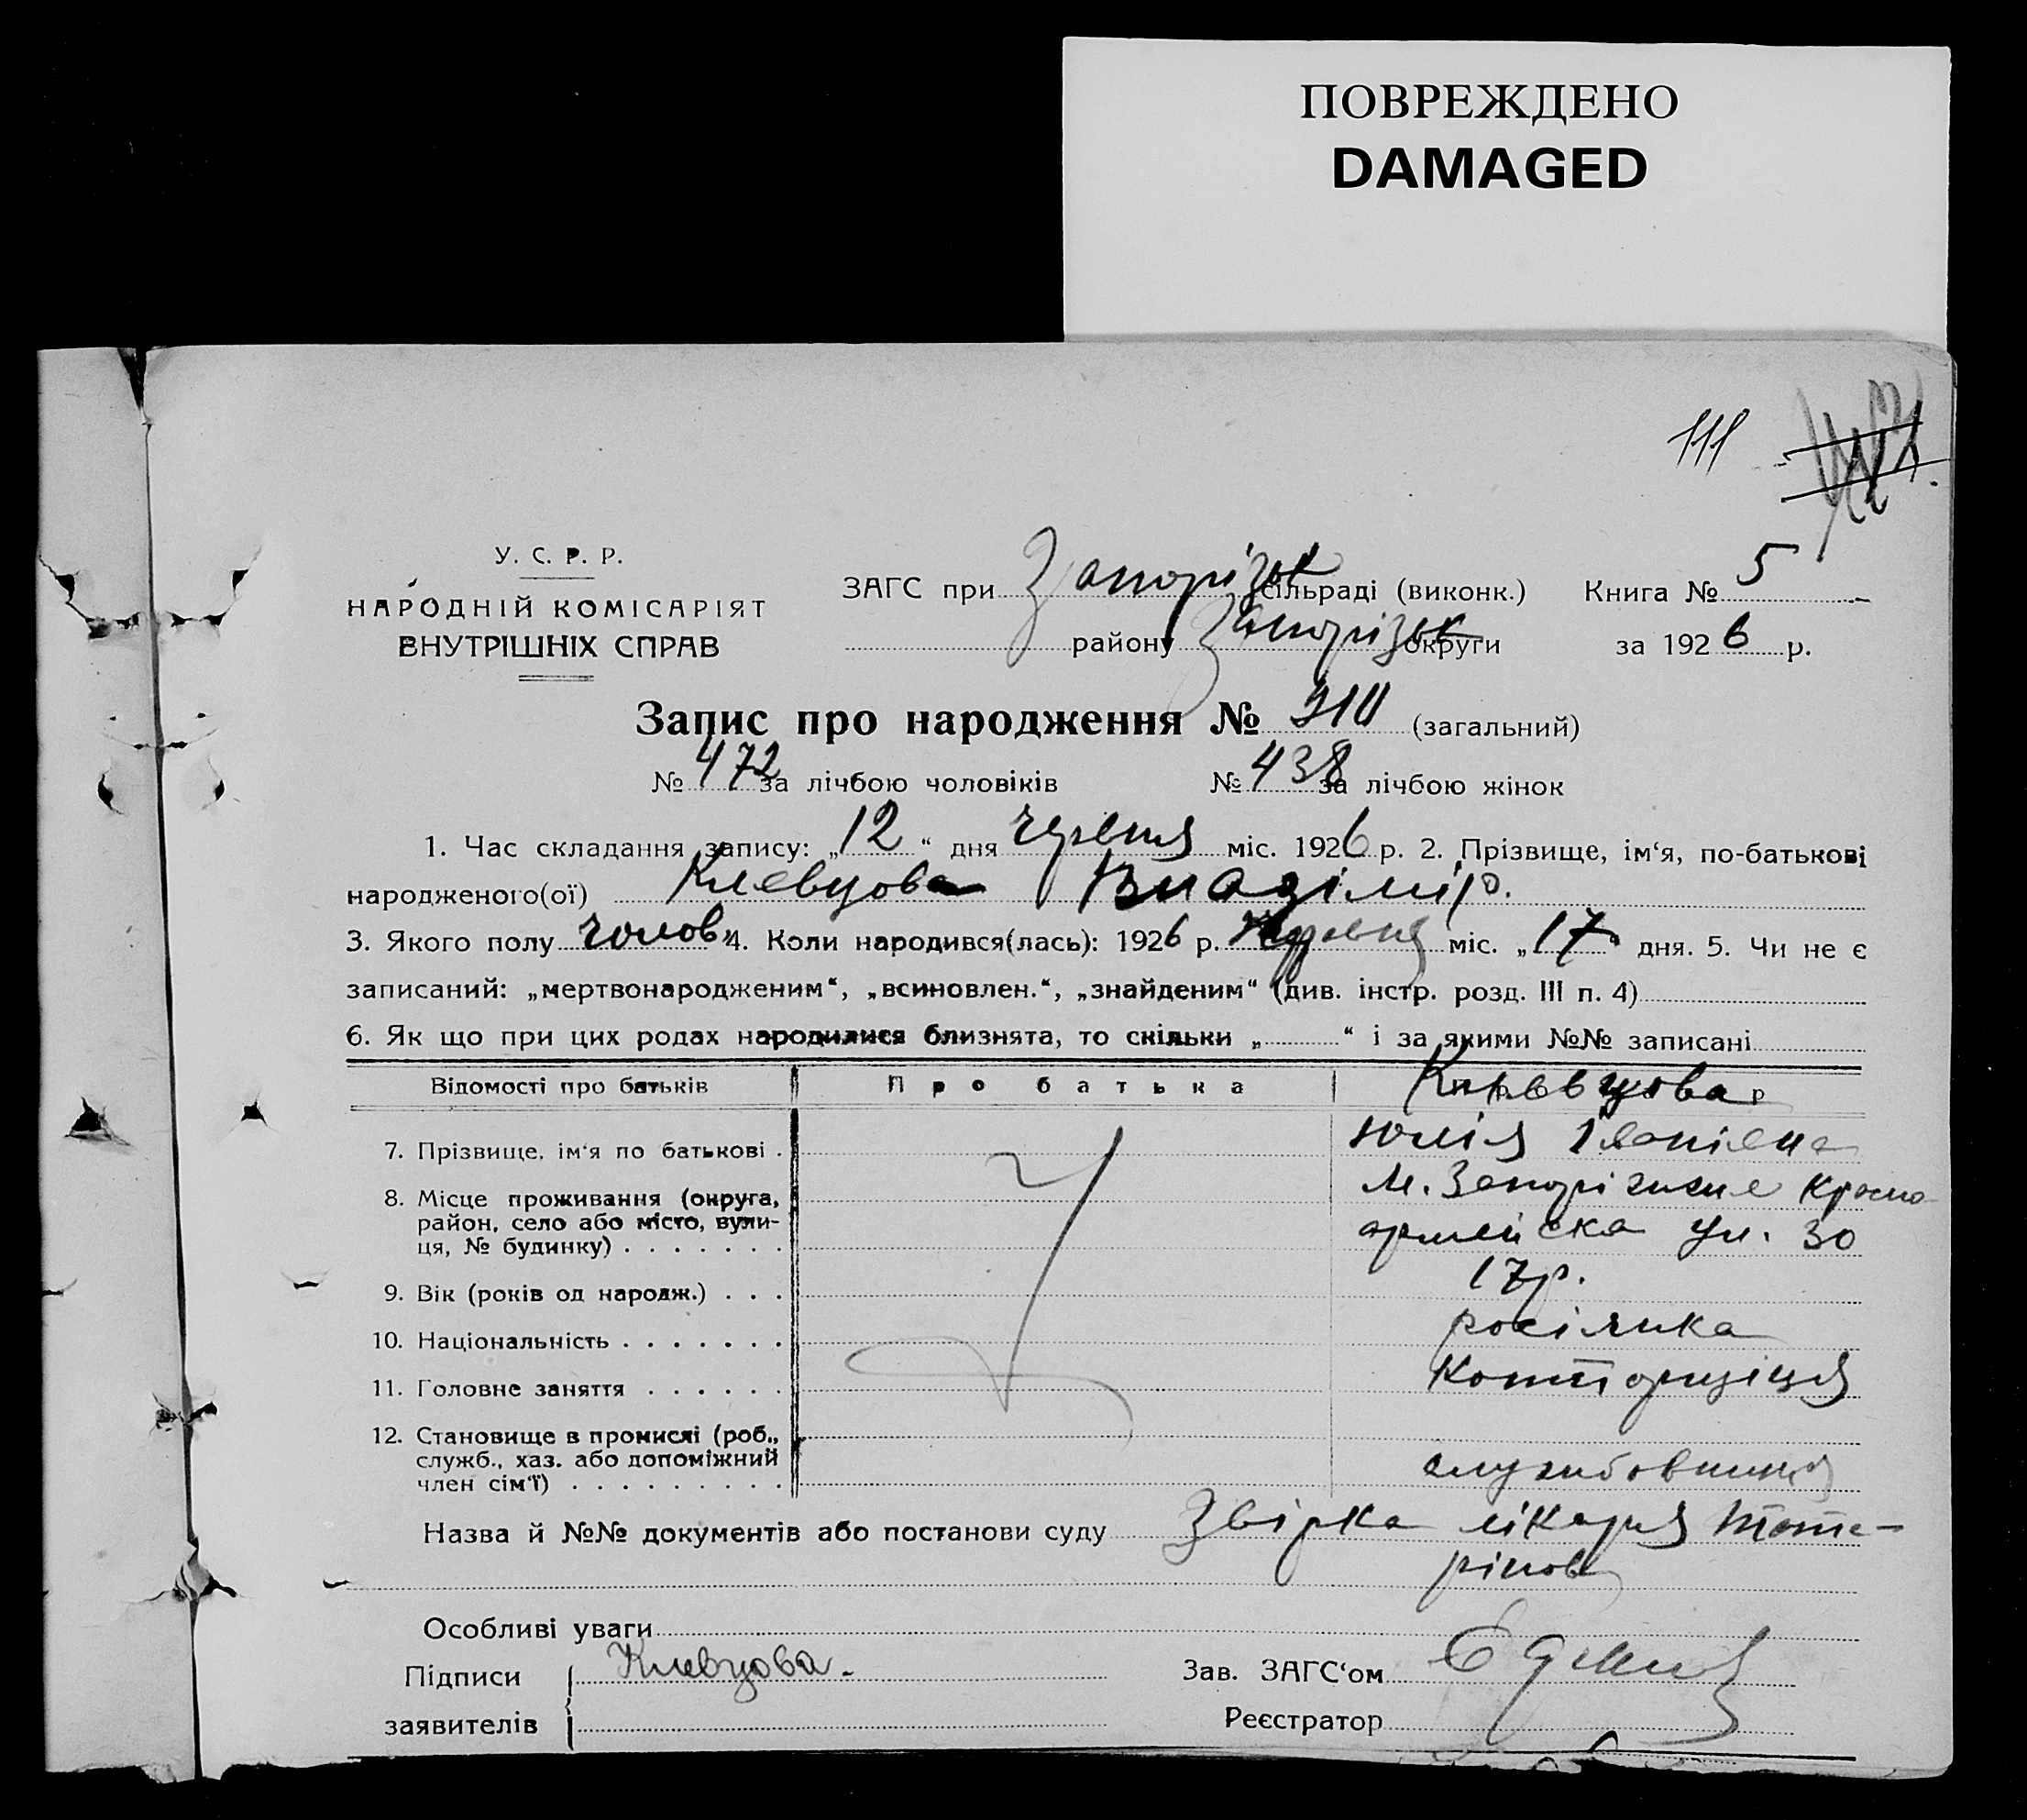 ПОВРЕЖДЕНО
DAMAGED
111
У. С. Р. Р.
НАРОДНІЙ КОМІСАРІЯТ
ВНУТРІШНІХ СПРАВ
ЗАГС при Запорізьк сільраді (виконк.)
району Запорізьк округи
Книга № 5
за 1926 р.
Запис про народження № 910 (загальний)
№ 472 за лічбою чоловіків № 438 за лічбою жінок
1. Час складання запису: „12“ дня червня міс. 1926 р. 2. Прізвище, ім‘я, по-батькові
народженого(ої) Клевцова Владімір.
3. Якого полу чолов. 4. Коли народився(лась): 1926 р. міс. „17“ дня. 5. Чи не є
записаний: „мертвонародженим“, „всиновлен.“, „знайденим“ (див. інстр. розд. III п. 4)
6. Як що при цих родах народилися близнята, то скільки „ “ і за якими №№ записані
Відомості про батьків Про батька Клевцова
7. Прізвище, ім‘я по батькові . Юлія Іванівна
8. Місце проживання (округа, м. Запоріжжє Красно
район, село або місто, вули- армейска ул. 30
ця, № будинку) . . . . . . .
9. Вік (років од народж.) . . . 17 р.
10. Національність . . . . . . . росіянка
11. Головне заняття . . . . . . Конторщиця
12. Становище в промислі (роб.,
служб., хаз. або допоміжний
член сім‘ї) . . . . . . . . . службовниця
Назва й №№ документів або постанови суду лікаря
Особливі уваги
Підписи Клевцова.
заявителів
Зав. ЗАГС‘ом
Реєстратор